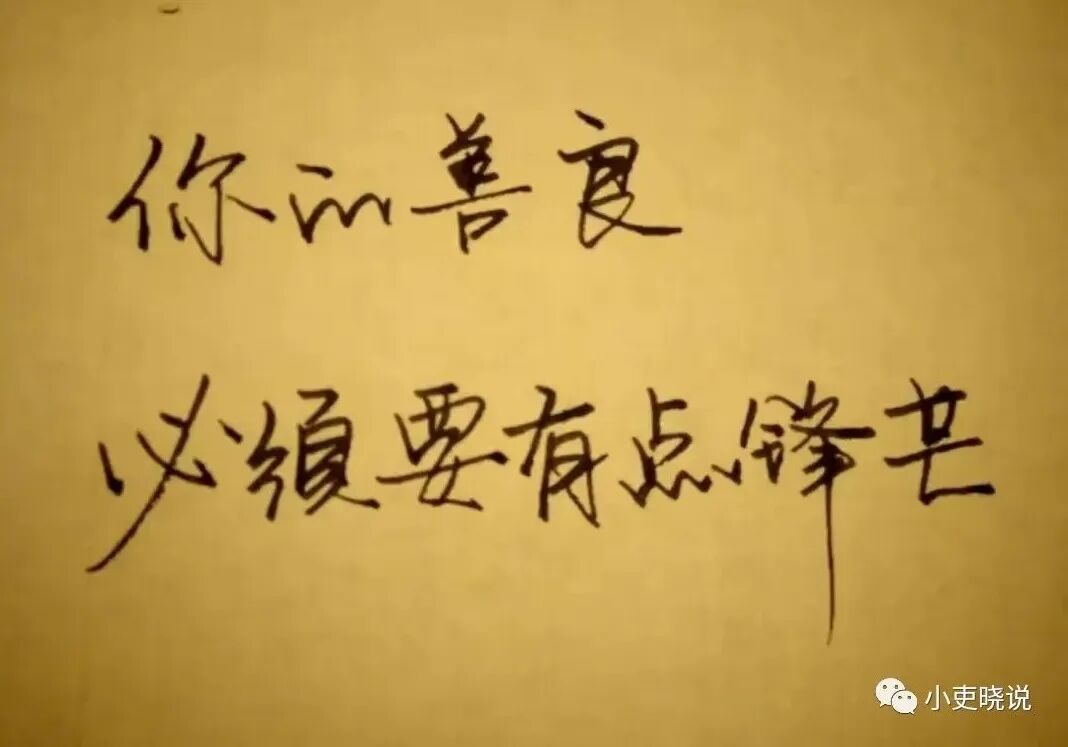 你的善良
必須要有点鋒芒
小吏晓说